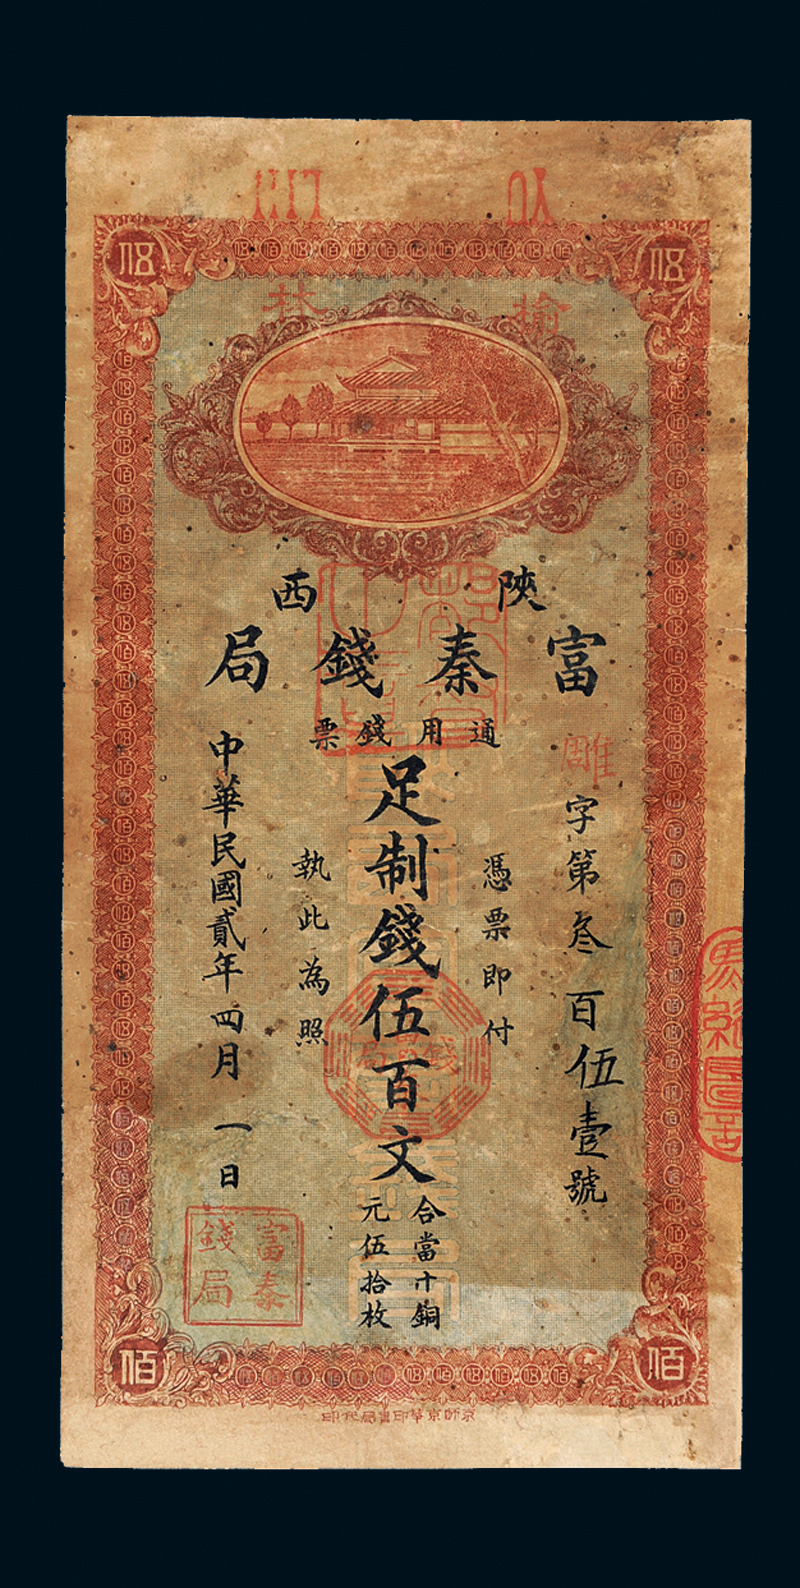 伍 伍
榆林
陝西
富秦錢局
通用錢票
雕字第叁百伍壹號
憑票即付
足制錢伍百文
合當十銅
元伍拾枚
執此為照
中華民國貳年四月一日
富秦
錢局
佰 佰
京師京華印書局代印